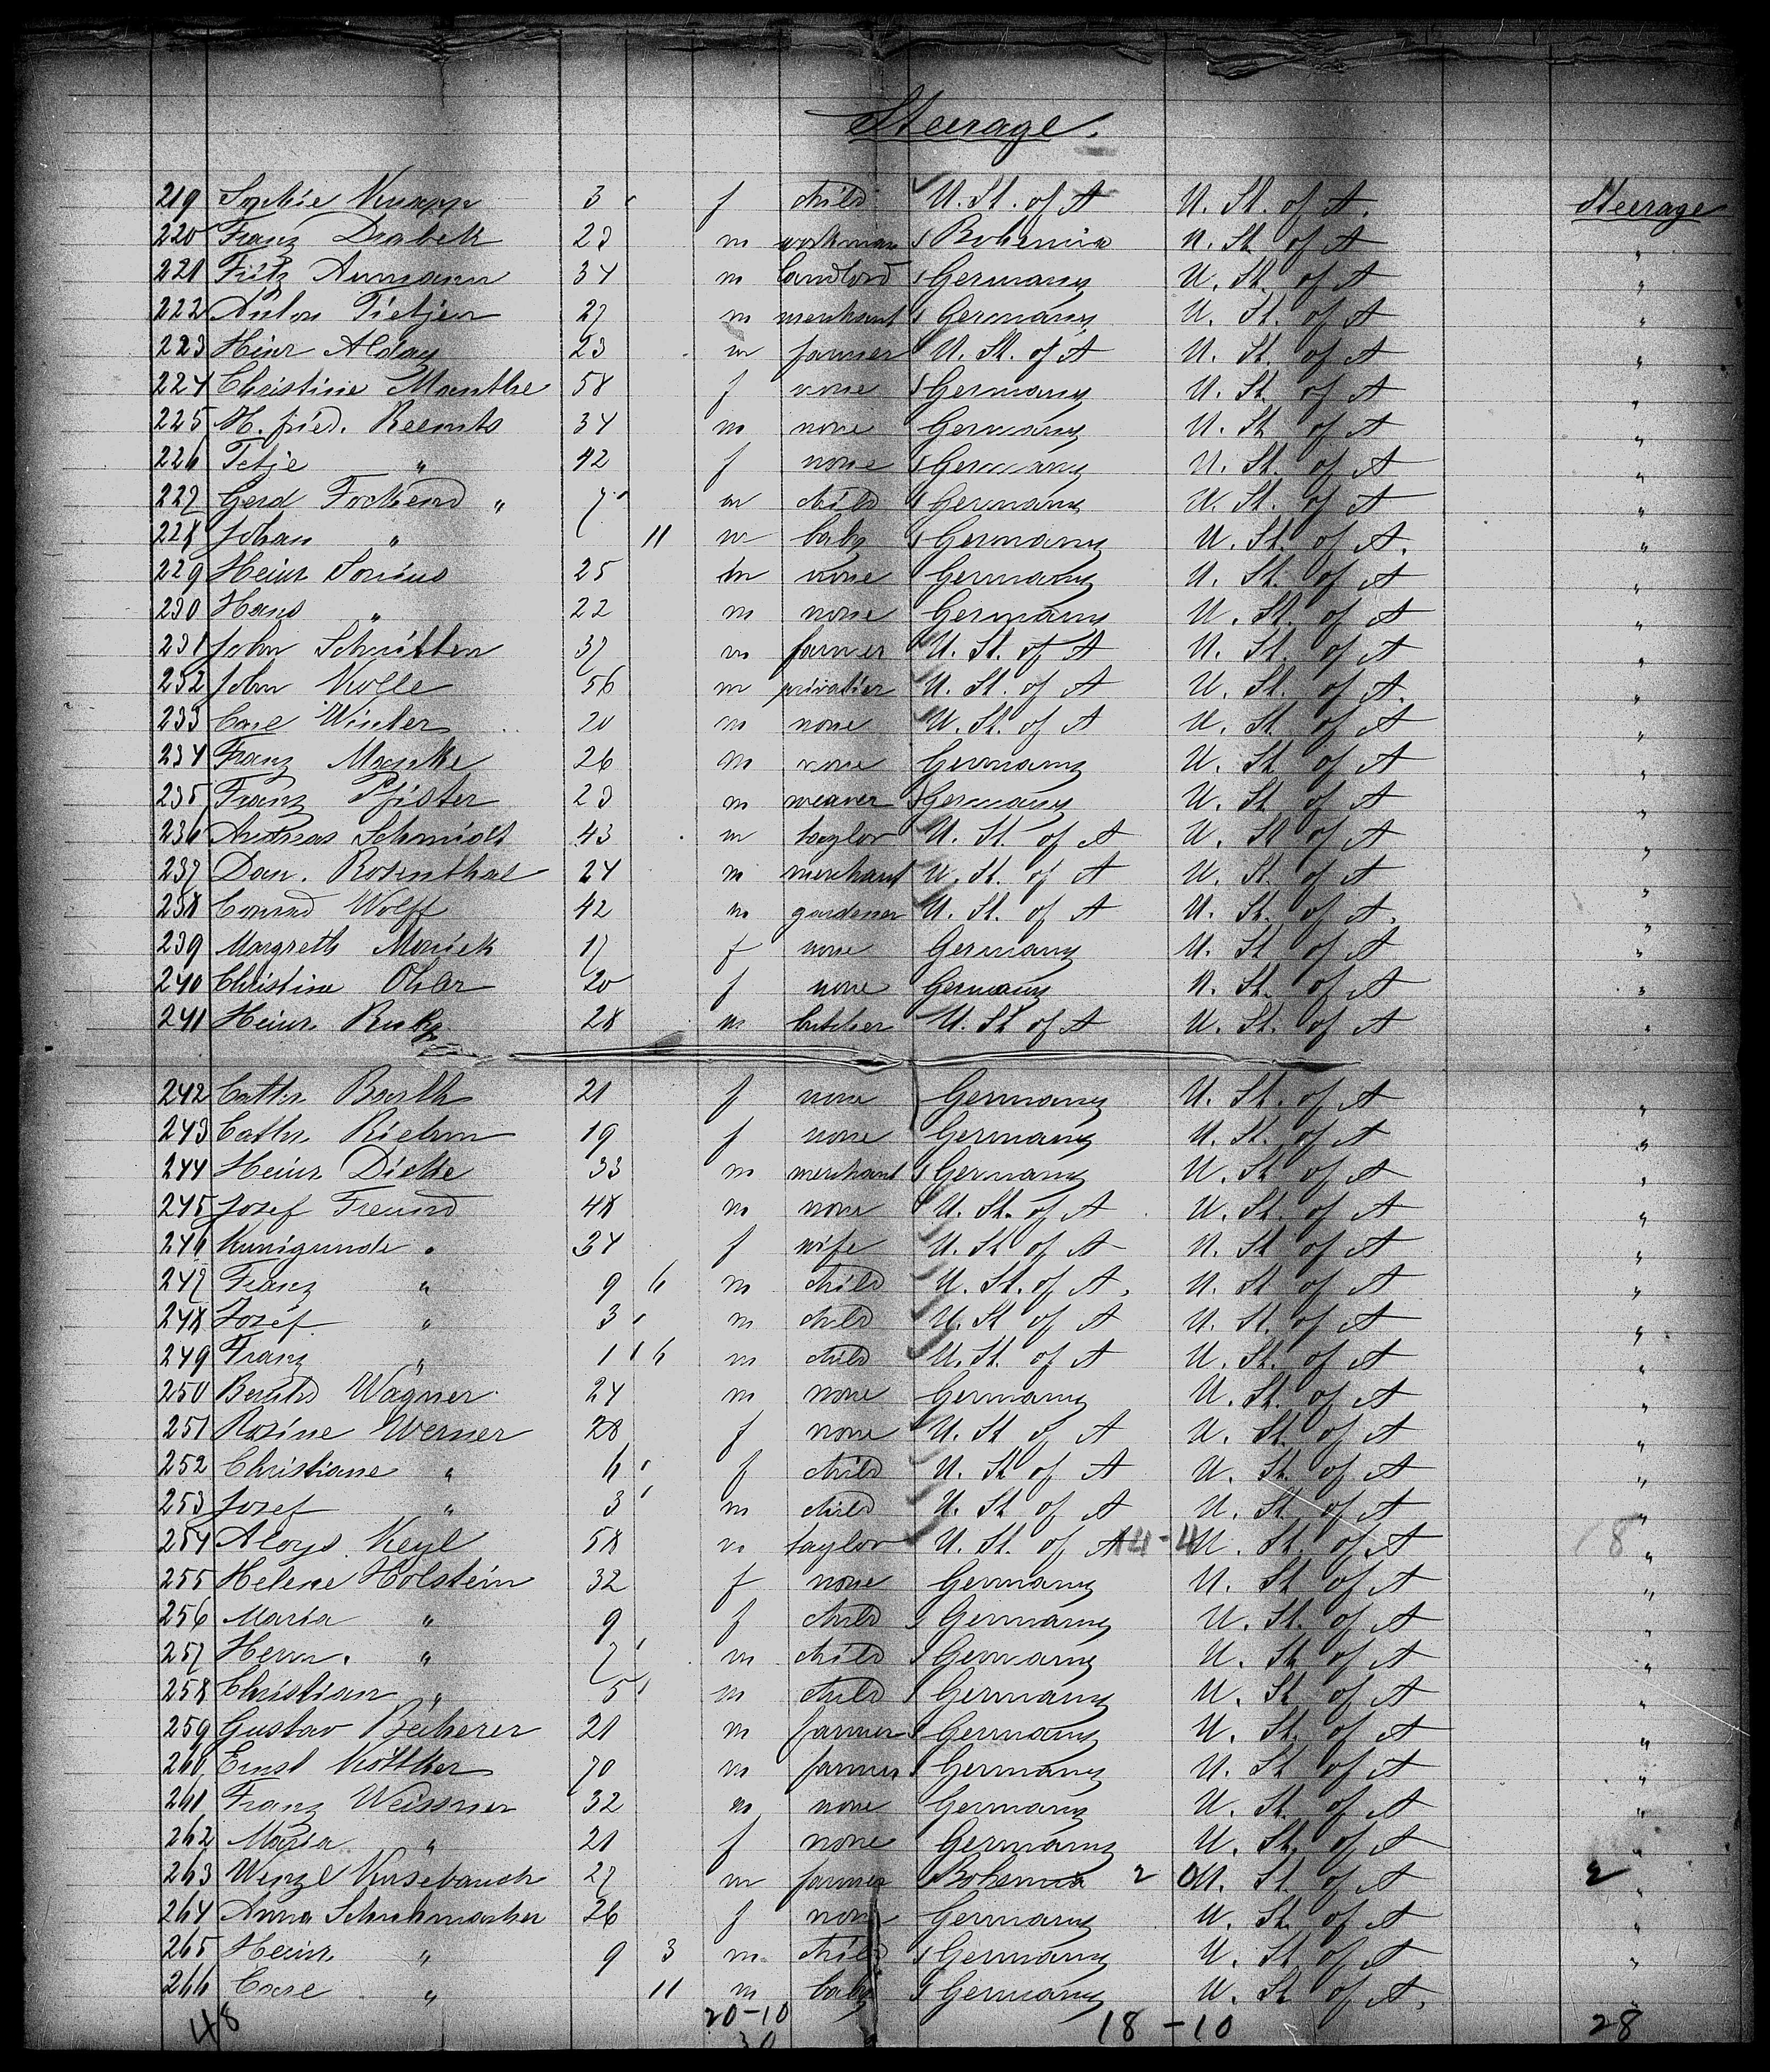 Steerage.
219 Sophie Knapp 3 f child U. St. of A U. St. of A. Steerage
220 Franz Drabek 23 m workman Bohemia U. St. of A "
221 Fritz Aumann 34 m landlord Germany U. St. of A "
222 Anton Tietjen 27 m merchant Germany U. St. of A "
223 Heinr Alday 23 m farmer U. St. of A U. St. of A "
224 Christine Manthe 58 f none Germany U. St. of A "
225 H. fried. Reents 34 m none Germany U. St. of A "
226 Tetje " 42 f none Germany U. St. of A "
227 Gerd Fockend " 7 m child Germany U. St. of A "
228 Johan " 11 m baby Germany U. St. of A. "
229 Heinr. Sonius 25 m none Germany U. St. of A "
230 Hans " 22 m none Germany U. St. of A "
231 John Schritten 37 m farmer U. St. of A U. St. of A "
232 John Kolle 56 m privatier U. St. of A U. St. of A. "
233 Carl Winter 20 m none U. St. of A U. St. of A "
234 Franz Manke 26 m none Germany U. St. of A "
235 Franz Pfister 23 m weaver Germany U. St. of A "
236 Andreas Schmidt 43 m taylor U. St. of A U. St. of A "
237 Dan. Rosenthal 24 m merchant U. St. of A U. St. of A "
238 Conrad Wolff 42 m gardener U. St. of A U. St. of A. "
239 Margreth Moriek 17 f none Germany U. St. of A "
240 Christine Ohlar 20 f none Germany U. St. of A "
241 Heinr. Ruby 28 m butcher U. St. of A U. St. of A "
242 Cathr. Barth 21 f none Germany U. St. of A "
243 Cathr. Riehm 19 f none Germany U. St. of A "
244 Heinr. Dicke 33 m merchant Germany U. St. of A "
245 Josef Freund 48 m none U. St. of A U. St. of A "
246 Kunigunde " 34 f wife U. St. of A U. St. of A "
247 Franz " 9 6 m child U. St. of A. U. St. of A "
248 Josef " 3 m child U. St. of A U. St. of A "
249 Franz " 1 6 m child U. St. of A U. St. of A "
250 Bernhd Wagner 24 m none Germany U. St. of A "
251 Rosine Werner 28 f none U. St of A U. St. of A "
252 Christiane " 6 f child U. St. of A U. St. of A "
253 Josef " 3 m child U. St. of A U. St. of A "
254 Aloys Keyl 58 m taylor U. St. of A 14-4 U. St. of A 18 "
255 Helene Holstein 32 f none Germany U. St. of A "
256 Maria " 9 f child Germany U. St. of A "
257 Herm. " 7 m child Germany U. St. of A "
258 Christian " 5 m child Germany U. St. of A "
259 Gustav Becherer 21 m farmer Germany U. St. of A "
260 Ernst Kottker 70 m farmer Germany U. St. of A "
261 Franz Weissner 32 m none Germany U. St. of A "
262 Maria " 21 f none Germany U. St. of A "
263 Wenzl Kusebauch 27 m farmer Bohemia 2 0 U. St. of A 2 "
264 Anna Schuhmacher 26 f none Germany U. St. of A "
265 Heinr. " 9 3 m child Germany U. St. of A "
266 Carl " 11 m baby Germany U. St. of A. "
48 20-10 18-10 28
30